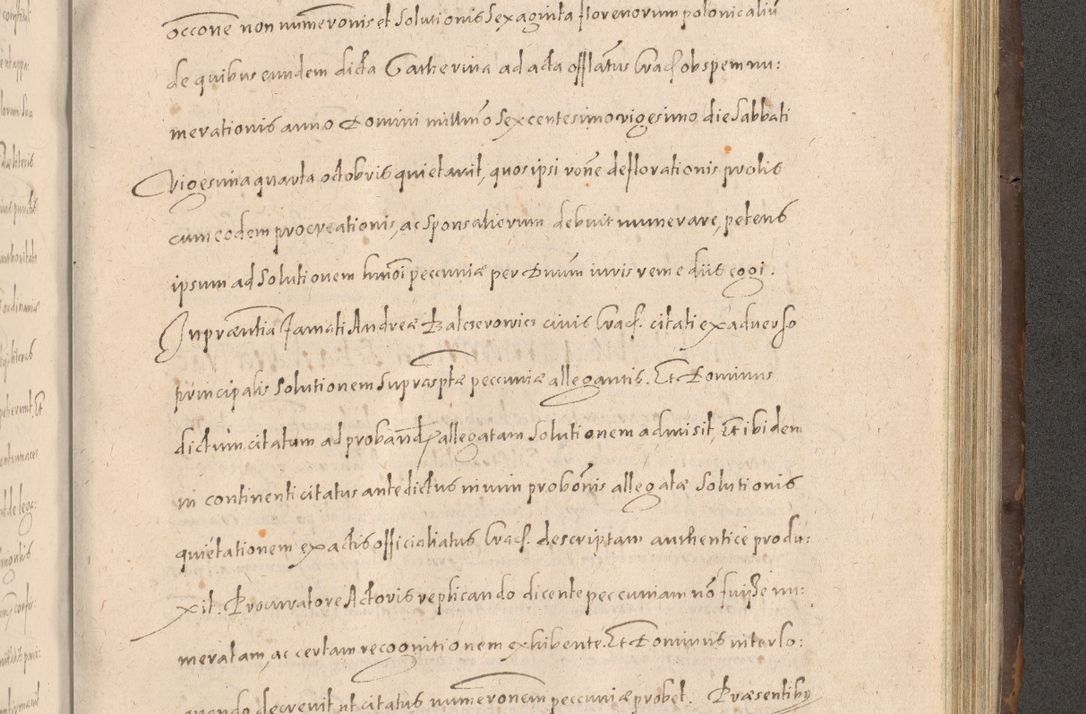 occone non numeronis et solutionis sexaginta florenorum polonicaliu
de quibus eundem dicta Catherina ad acta offlatus Cracf ob spem nu:
merationis anno Domini millimo sexcentesimo vigesimo die Sabbati
vigesima quarta octobris quietavit, quos ipsi rone deflorationis prolis
cum eodem procreationis, ac sponsaliorum debuit numerare, petens
ipsum ad solutionem hmoi peccuniæ per Dnum iuris reme diis cogi.
In præntia famati Andreæ Balcerowicz civis Cracf. citati ex adverso
principalis solutionem supra sptæ peccuniæ allegantis. Et Dominus
dictum citatum ad proband allegatam solutionem admisit, Et ibidem
in continenti citatus antedictus in vim probonis allegatæ solutionis
quietationem ex actis officialiatus Cracf. descriptam authentice produ:
xit. Procuratore Actoris replicando dicente peccuniam nō fuisse nu:
meratam, ac certam recognitionem exhibente. Et Dominus interlo:
quendo decrevit ut citatus numeronem peccuniæ probet. Præsentibus